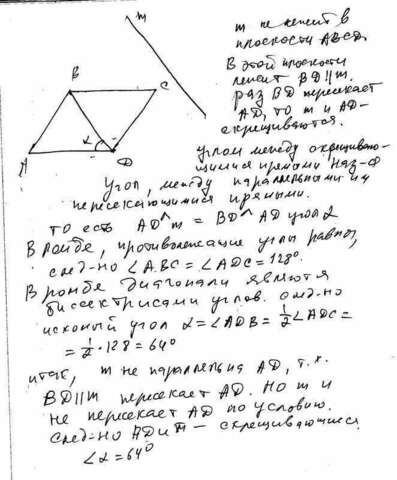 m
m не лежит в
плоскости ABCD.
В этой плоскости
B
C
лежит BD||m.
раз BD пересекает
AD, то m и AD-
скрещиваются.
α
A
D
углом между скрещиваю-
щимися прямыми наз-ся
угол, между параллельными им
пересекающимися прямыми.
то есть AD^m = BD^AD угол α
В ромбе, противолежащие углы равны,
след-но ∠ABC=∠ADC=128°.
В ромбе диагонали являются
биссектрисами углов. след-но
искомый угол α=∠ADB=½∠ADC=
=½·128=64°
итак, m не параллельна AD, т.к.
BD||m пересекает AD. Но m и
не пересекает AD по условию.
След-но AD и m — скрещивающиеся.
∠α=64°